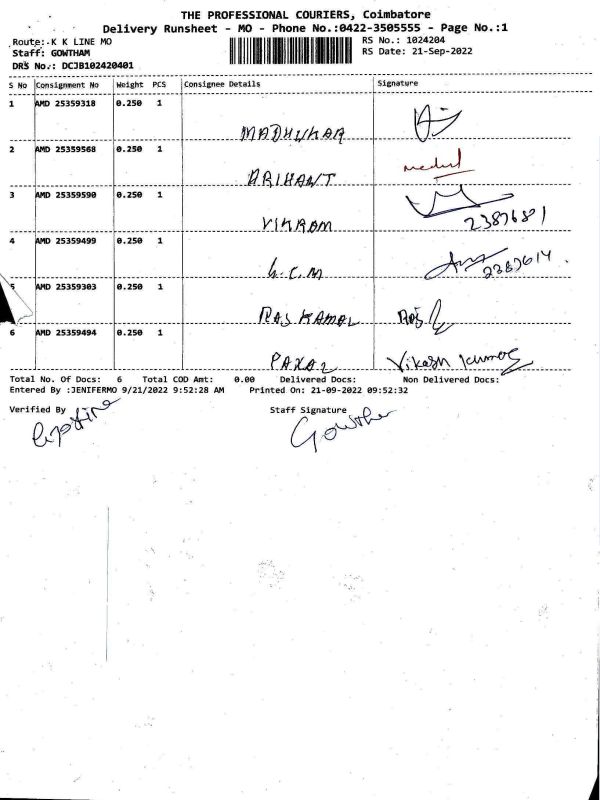 THE PROFESSIONAL COURIERS, Coimbatore
Delivery Runsheet - MO - Phone No.:0422-3505555 - Page No.:1
Route:-K K LINE MO RS No.: 1024204
Staff: GOWTHAM RS Date: 21-Sep-2022
DRS No.: DCJB102420401
S No Consignment No Weight PCS Consignee Details Signature
1 AMD 25359318 0.250 1
MADHUKAR
2 AMD 25359568 0.250 1
ARIHANT
3 AMD 25359590 0.250 1
VIKRAM 2387681
4 AMD 25359499 0.250 1
G.C.M 2387614.
5 AMD 25359303 0.250 1
RAJ KAMAL Raj
6 AMD 25359494 0.250 1
Vikash Kumar
Total No. Of Docs: 6 Total COD Amt: 0.00 Delivered Docs: Non Delivered Docs:
Entered By :JENIFERMO 9/21/2022 9:52:28 AM Printed On: 21-09-2022 09:52:32
Verified By Staff Signature
Gowtham